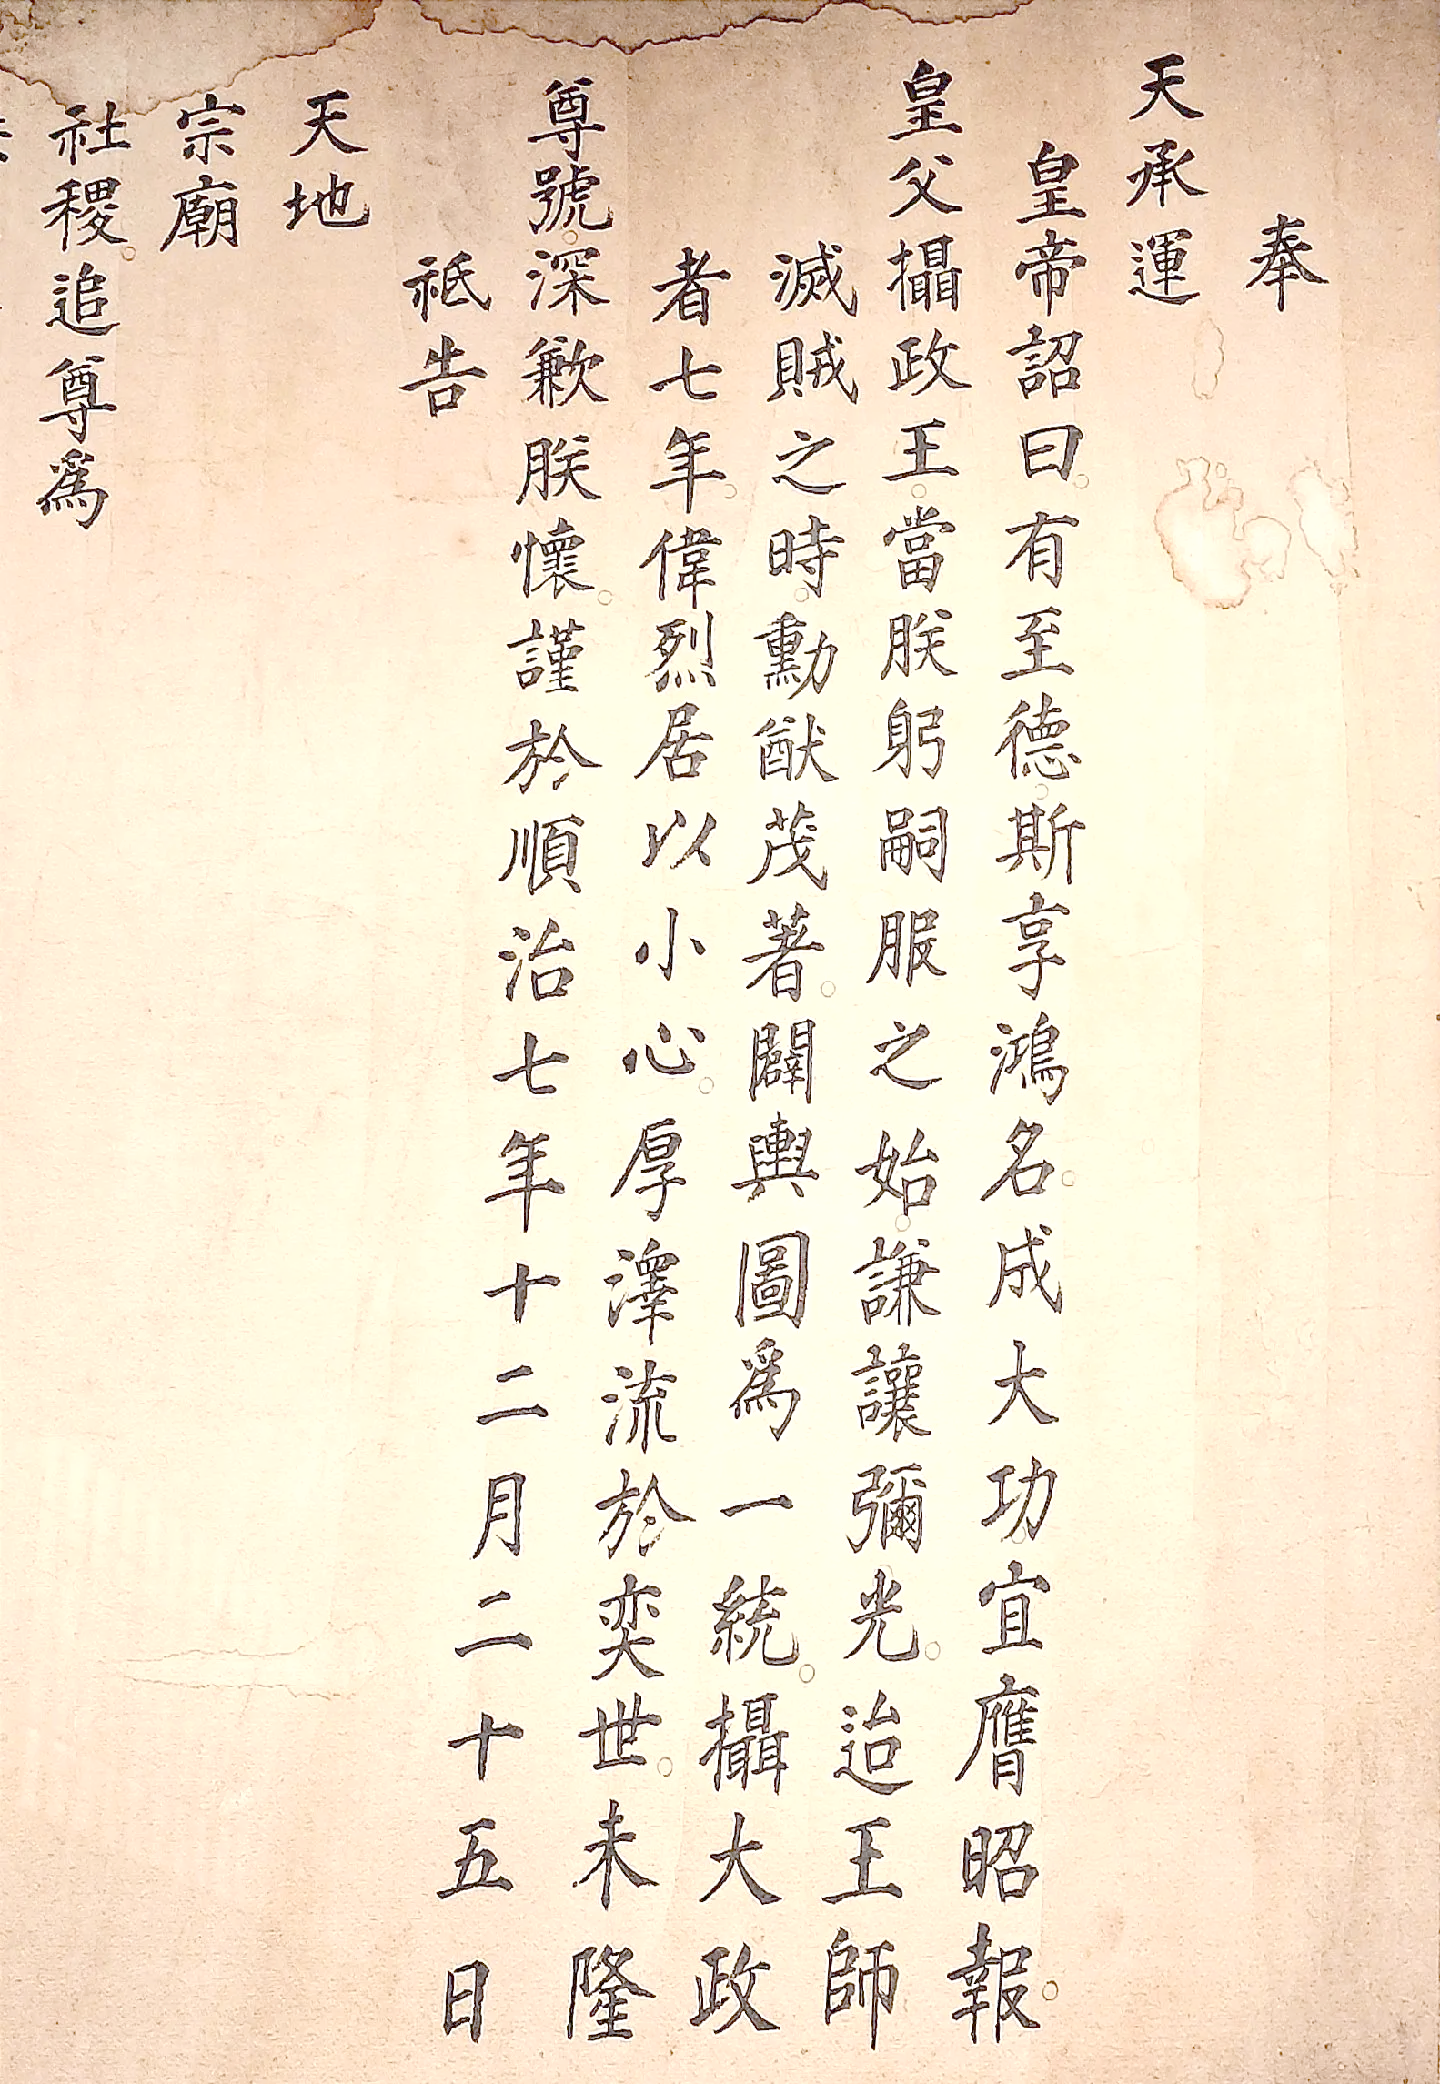 奉
天承運
皇帝詔曰有至德斯享鴻名成大功宜膺昭報
皇父攝政王當朕躬嗣服之始謙讓彌光迨王師
滅賊之時勳猷茂著闢輿圖爲一統攝大政
者七年偉烈居以小心厚澤流於奕世未隆
尊號深歉朕懷謹於順治七年十二月二十五日
祗告
天地
宗廟
社稷追尊爲